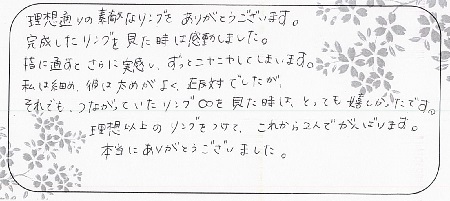 理想通りの素敵なリングを ありがとうございます。
完成したリングを見た時は感動しました。
指に通すと さらに実感し、ずっとニヤニヤしてしまいます。
私は細め、彼は太めがよく、正反対でしたが、
それでも、つながっていたリング○○を見た時は、とっても嬉しかったです。
理想以上の リングをつけて、これから2人でがんばります。
本当にありがとうございました。